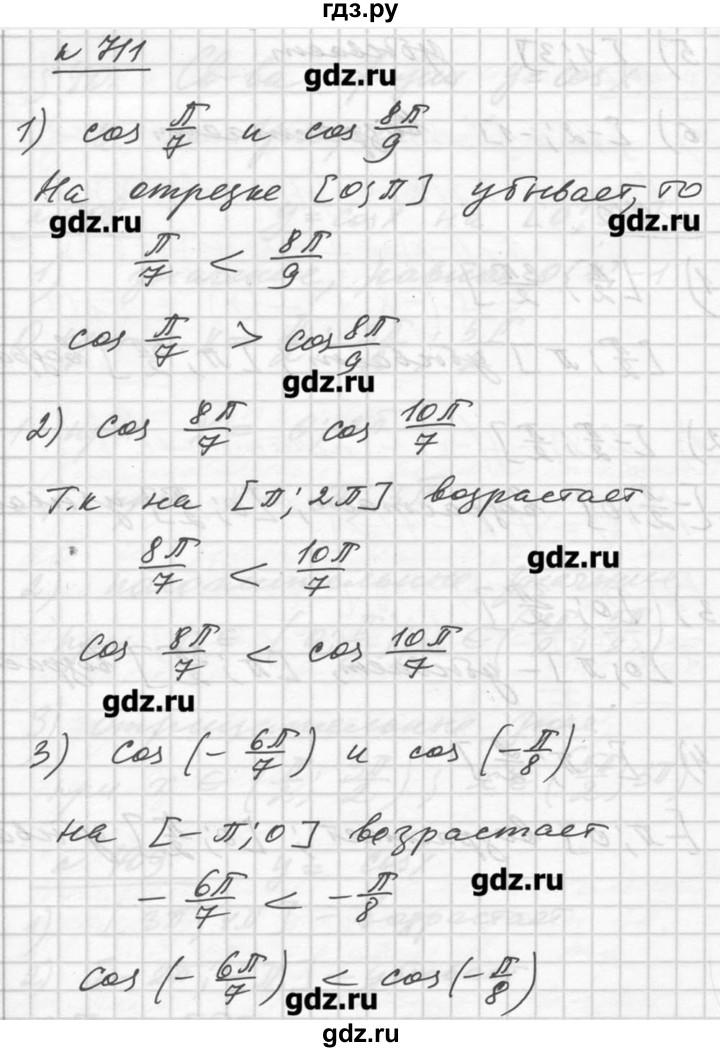 гдз.ру
№ 711
gdz.ru
1) cos π/7 и cos 8π/9
На отрезке [0; π] убывает, то
gdz.ru gdz.ru
π/7 < 8π/9
cos π/7 > cos 8π/9
gdz.ru
2) cos 8π/7 cos 10π/7
Т.к на [π; 2π] возрастает
8π/7 < 10π/7
gdz.ru
cos 8π/7 < cos 10π/7
gdz.ru
3) cos (- 6π/7) и cos (- π/8)
на [-π; 0] возрастает
- 6π/7 < - π/8
gdz.ru
cos (- 6π/7) < cos (- π/8)
gdz.ru
gdz.ru